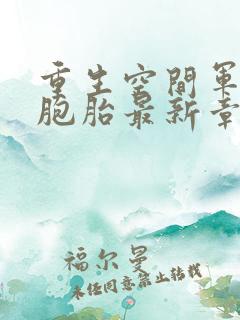 重生空間軍
胞胎最新章
福尔曼
未经同意禁止转载